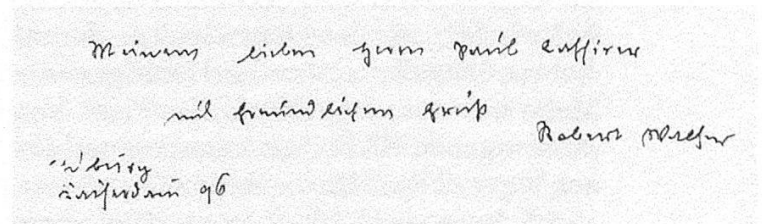 Meinem lieben Herrn Paul Cassirer
mit freundlichem Gruß
Robert Walser
Kaiserdamm 96